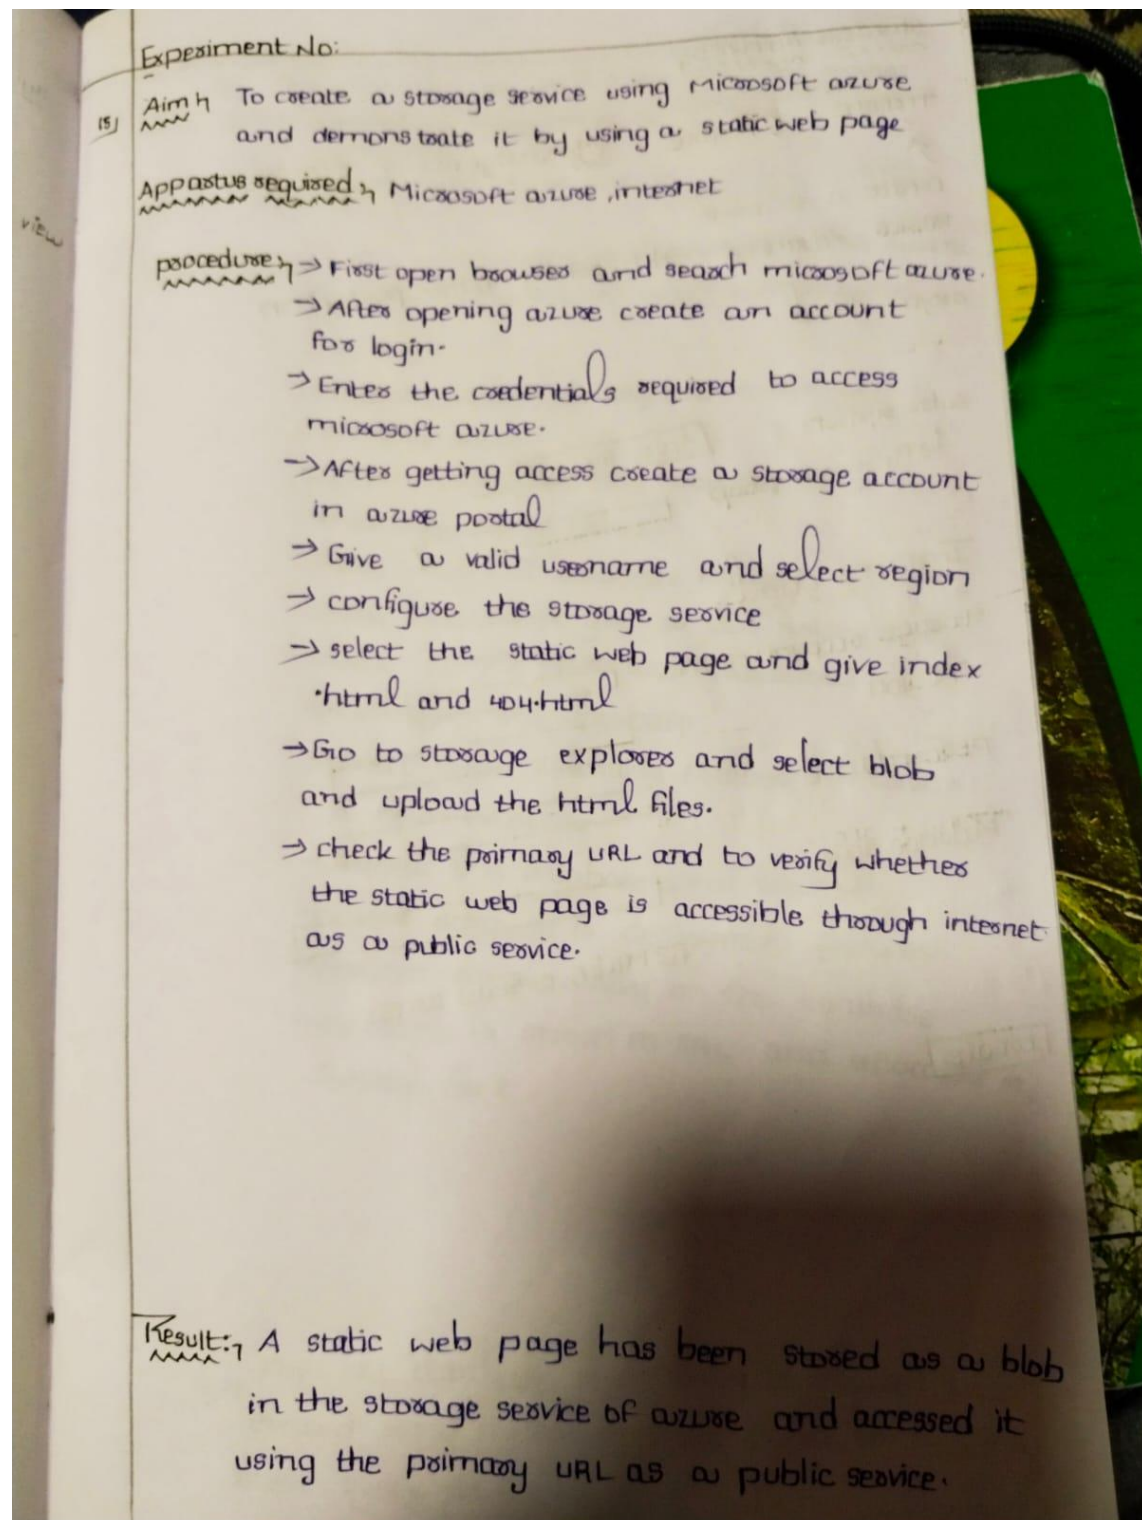 Experiment No:
15) Aim:- To create a storage service using Microsoft azure
and demonstrate it by using a static web page
Appartus required:- Microsoft azure, internet
procedure:- → First open browser and search microsoft azure.
→ After opening azure create an account
for login.
→ Enter the credentials required to access
microsoft azure.
→ After getting access create a storage account
in azure portal
→ Give a valid username and select region
→ configure the storage service
→ select the static web page and give index
.html and 404.html
→ Go to storage explorer and select blob
and upload the html files.
→ check the primary URL and to verify whether
the static web page is accessible through internet
as a public service.
Result:- A static web page has been stored as a blob
in the storage service of azure and accessed it
using the primary URL as a public service.
view